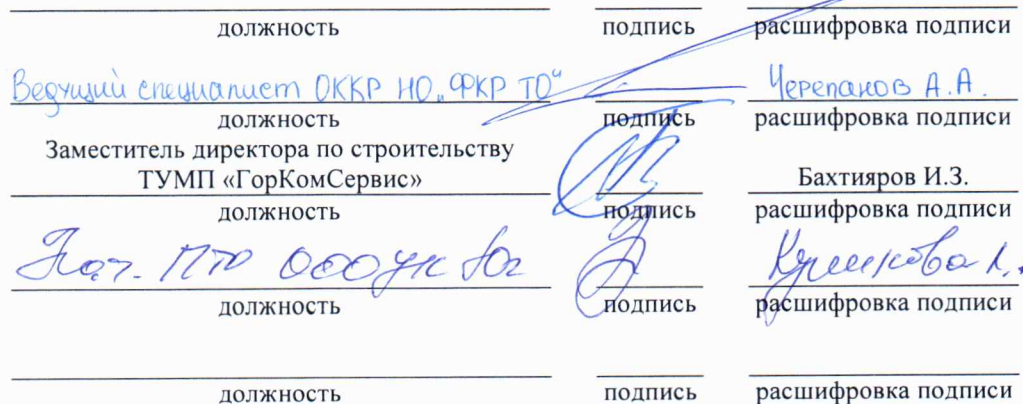 должность подпись расшифровка подписи
Ведущий специалист ОККР НО „ФКР ТО" Черепанов А.А.
должность подпись расшифровка подписи
Заместитель директора по строительству
ТУМП «ГорКомСервис» Бахтияров И.З.
должность подпись расшифровка подписи
Нач. ПТО ООО УК Юг
должность подпись расшифровка подписи
должность подпись расшифровка подписи